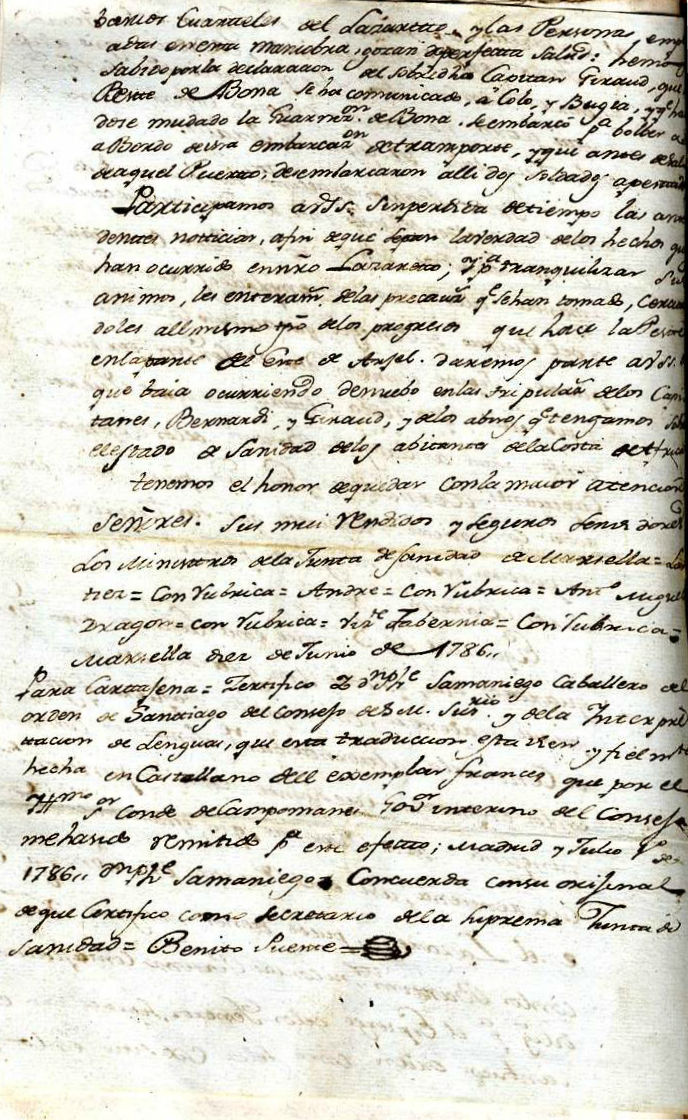 Quarteles del Lazaretto y las Personas emple
adas en esta maniobra, gozan de perfecta salud: hemos
sabido por la declaracion del sobredho Capitan Giraud, que
Peste de Bona se ha comunicado, a Colo, y Bugia, y q.e ha
dose mudado la Guarn.on de Bona se embarcó p.a bolber a
a Bordo de esta embarca.on de transporte, y que antes de sal
de aquel Puerto, desembarcaron alli dos soldados apestad
Participamos a VSS. sin perdida de tiempo las ante
dentes noticias, a fin de que sepan la verdad de los hechos que
han ocurrido en nro Lazareto; y p.a tranquilizar sus
animos, les enteram.s de las precau.s q.e se han tomado, cercio
doles al mismo tpo de los progresos que hace la Peste
en la parte del Este de Arjel. daremos parte a VSS.
que baia ocurriendo de nuebo en las tripula.s de los Capi
tanes, Bernardi, y Giraud, y de los abisos q.e tengamos sobre
el estado de Sanidad de los abitantes de la Costa de Africa
tenemos el honor de quedar con la maior atencion
Señores. sus mui rendidos y seguros servidores
Los Ministros de la Junta de sanidad de Marsella =
tier = Con Rubrica = Andre = con Rubrica = Ant.o Miguel
Dragon = con rubrica = Tabernia = Con Rubrica =
Marsella diez de Junio de 1786,,
Para Cartajena = Zertifico Yo dn Phe Samaniego Caballero del
orden de Santiago del Consejo de S.M. su s.rio y de la Interpre
tacion de Lenguas, que esta traduccion esta bien y fielm.te
hecha en Castellano del exemplar frances que por el
Yllmo s.or Conde de Campomanes Gov.or interino del Consejo
me ha sido remitido p.a este efecto; Madrid y Julio 1.o de
1786,, dn Phe Samaniego. Concuerda con su orijinal
de que Certifico como secretario de la Suprema Junta de
Sanidad = Benito Puente =